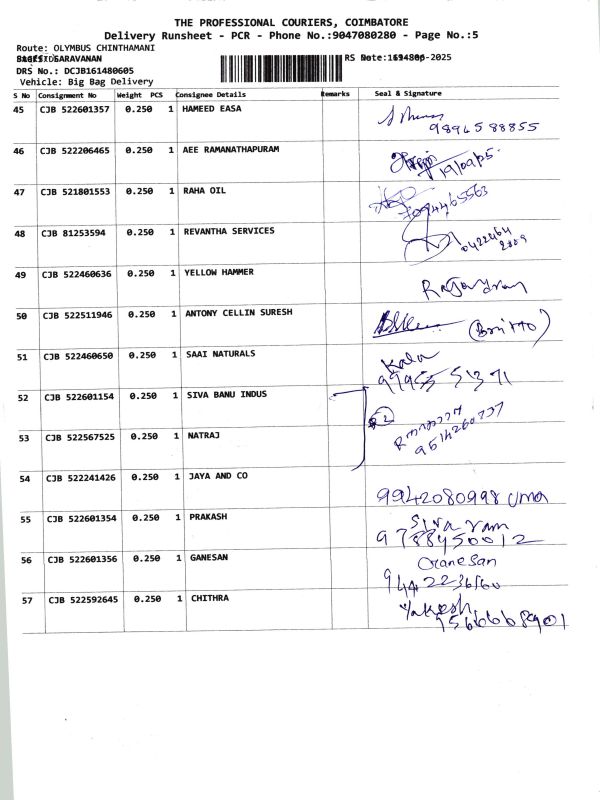 THE PROFESSIONAL COURIERS, COIMBATORE
Delivery Runsheet - PCR - Phone No.:9047080280 - Page No.:5
Route: OLYMBUS CHINTHAMANI
SARAVANAN
RS No Date: -2025
DRS No.: DCJB161480605
Vehicle: Big Bag Delivery
S No Consignment No Weight PCS Consignee Details Remarks Seal & Signature
45 CJB 522601357 0.250 1 HAMEED EASA
98945 88855
46 CJB 522206465 0.250 1 AEE RAMANATHAPURAM
19/09/25.
47 CJB 521801553 0.250 1 RAHA OIL
7094465563
48 CJB 81253594 0.250 1 REVANTHA SERVICES
0422464
2009
49 CJB 522460636 0.250 1 YELLOW HAMMER
Rajendran
50 CJB 522511946 0.250 1 ANTONY CELLIN SURESH
(Britto)
51 CJB 522460650 0.250 1 SAAI NATURALS
Kala
52 CJB 522601154 0.250 1 SIVA BANU INDUS
53 CJB 522567525 0.250 1 NATRAJ
9514260737
54 CJB 522241426 0.250 1 JAYA AND CO
9942080998 Uma
55 CJB 522601354 0.250 1 PRAKASH
Siva ram
9788450012
56 CJB 522601356 0.250 1 GANESAN
Ganesan
57 CJB 522592645 0.250 1 CHITHRA